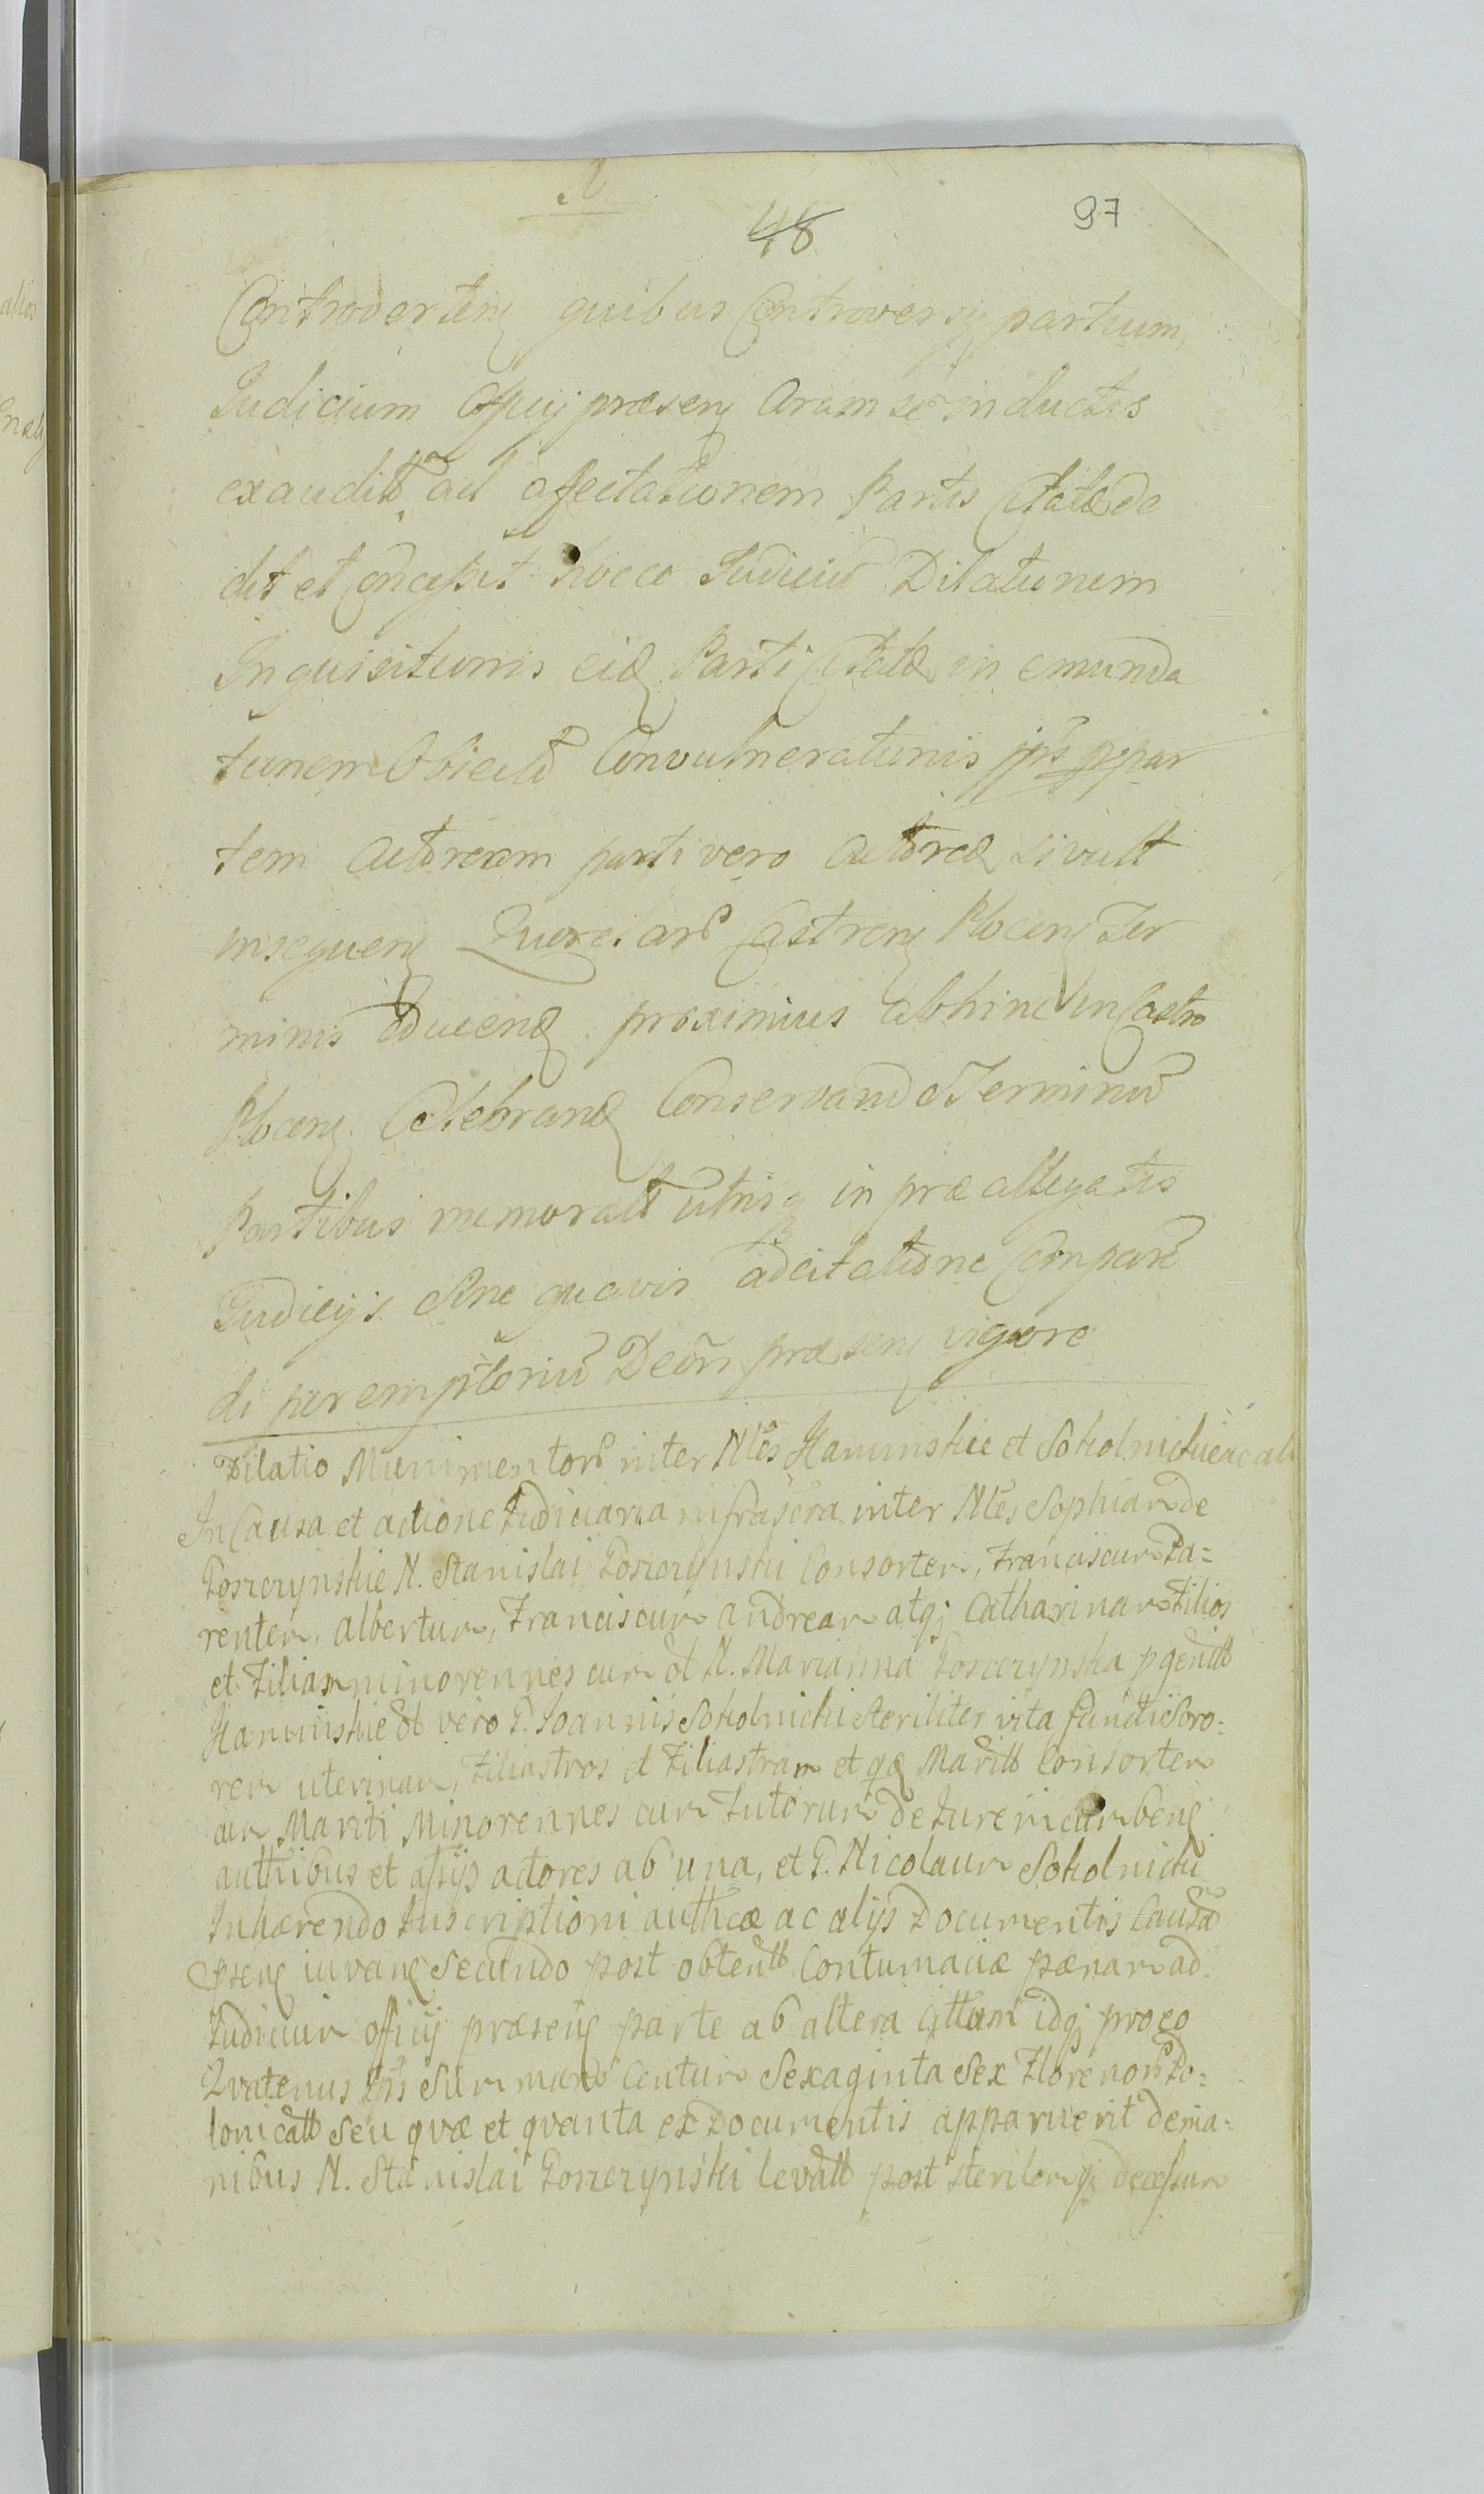 48
97
Controverten quibus Controversy partium,
Judicium Officij præsen Coram se inductis
exauditt ad affectationem Partis Citatæ de
dit et Concessit hocce Judiciu Dilationem
Inquisitionis eid Parti Citatæ in emunda
tionem Obiectæ Convulnerationis per par
tem Actoream parti vero Actoreæ si vult
insequen Querelar Castren Plocen Ter
minis Iudicend proximius abhinc in Castro
Plocen Celebrand Conservande Terminu
Partibus memoratt utrisq in præallegatis
Judicijs Sine quavis adcitatione Compare
di peremptoriu Decti præsen vigore
Dilatio Munimentor inter Nles Kaminskie et Sokolnicki
In Causa et actione Judiciaria infrascra inter Nles Sophiam de
Goszczynskie N. Stanislai Goszczynski Consortem, Franciscum Pa=
rentem, Albertum, Franciscum Andream atq; Catharinam Filios
et Filiam minorennes cum ol N. Marianna Goszczynska pgenitt
Kaminskie ol vero G. Joannis Sokolnicki steriliter vita functi Soro=
rem uterinam, Filiastros et Filiastram et qd Maritt Consortem
cum Mariti Minorennes cum Tutorum de Jure incumben
authibus et assijs actores ab una, et G. Nicolaum Sokolnicki
Inhærendo Inscriptioni authcæ ac alijs Documentis Causa
psen iuvan Secundo post obtentt Contumaciæ pænam ad
Judicium officij præsen parte ab altera cittum idq; pro eo
Qvatenus Summam Centum Sexaginta Sex Florenor Po=
lonicatt seu qvæ et qvanta ex Documentis apparuerit de ma=
nibus N. Stanislai Goszczynski levatt post sterilem decessum